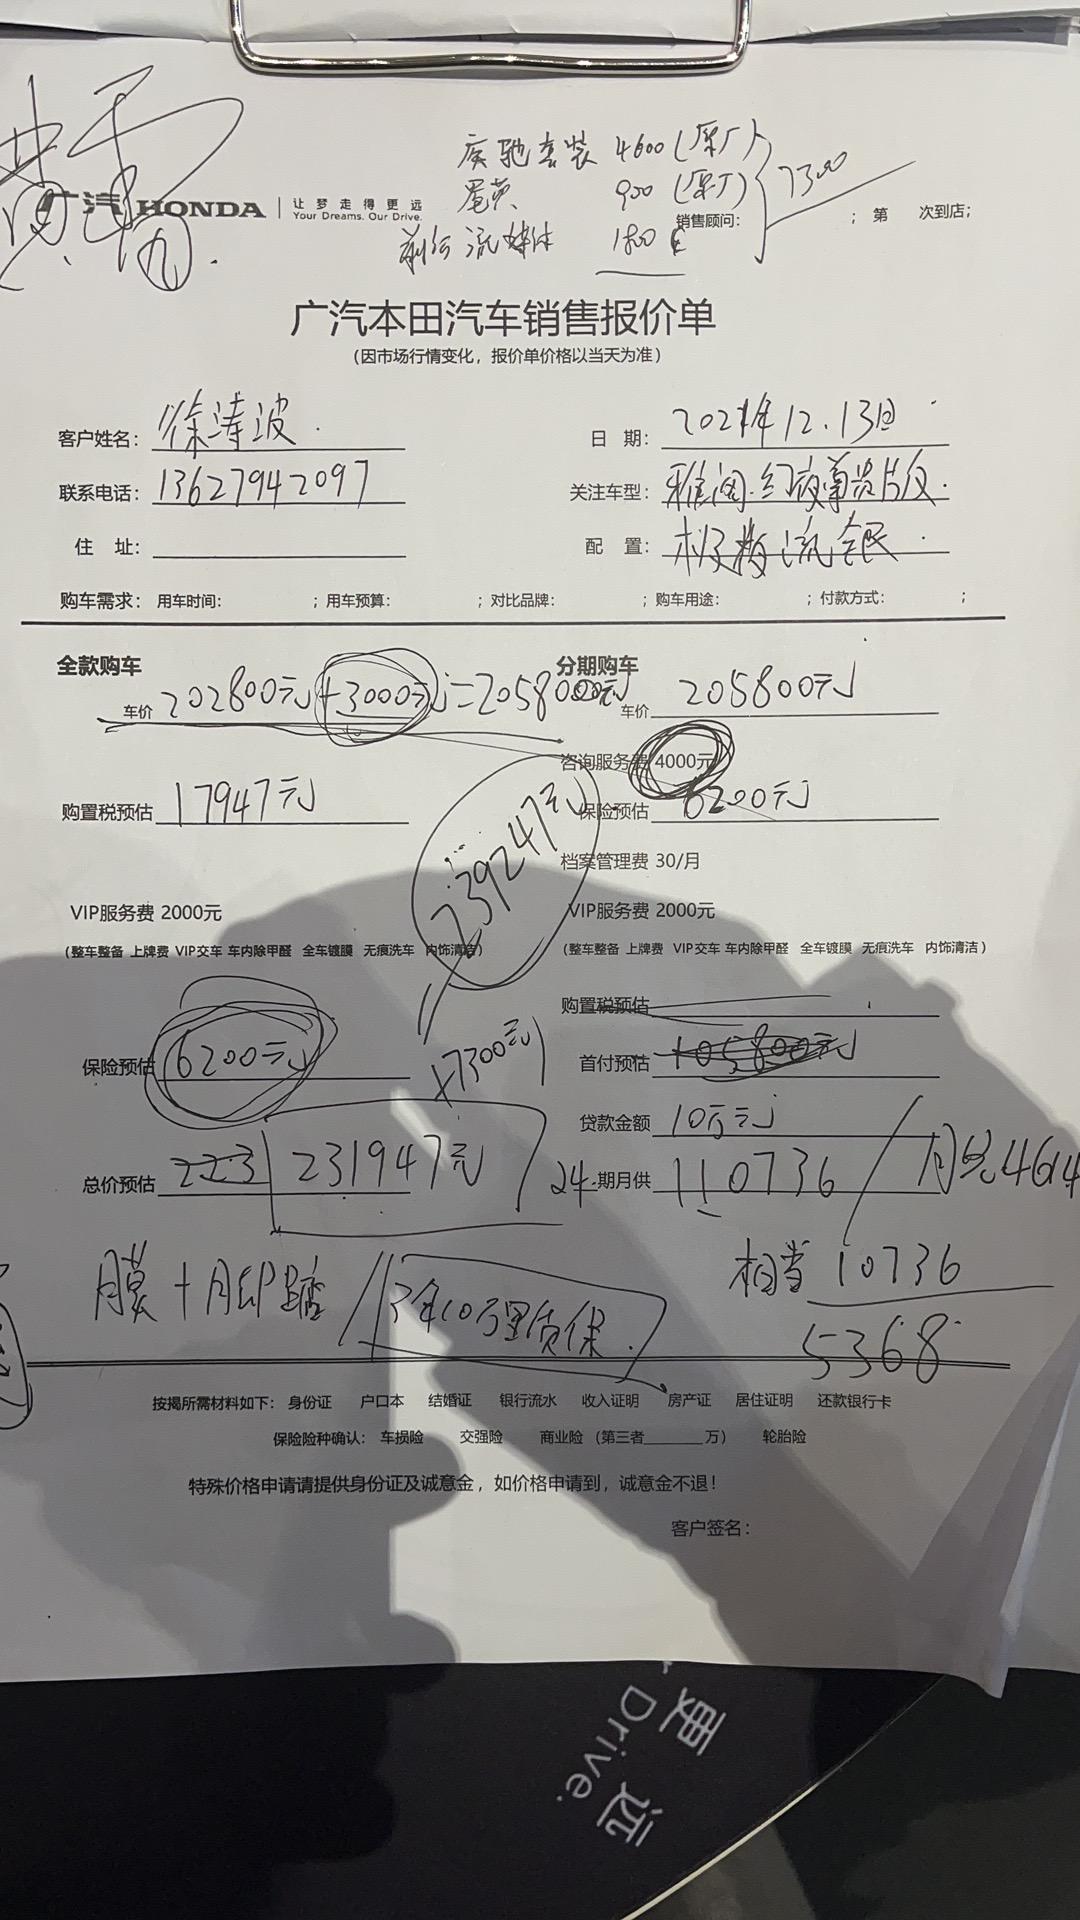 疾驰套装 4600 (原厂)
尾英 900 (原厂)
7300
前后流媒体 1800
广汽 HONDA 让梦走得更远
Your Dreams. Our Drive.
销售顾问: ; 第 次到店;
广汽本田汽车销售报价单
(因市场行情变化，报价单价格以当天为准)
客户姓名: 徐涛波
日 期: 2021年12.13日
联系电话: 13627942097
关注车型: 雅阁.幻夜尊贵版
住 址:
配 置: 流金银
购车需求: 用车时间: ; 用车预算: ; 对比品牌: ; 购车用途: ; 付款方式: ;
全款购车
分期购车
车价 202800元+3000元=205800元
车价 205800元
咨询服务费 4000元
购置税预估 17947元
保险预估 6200元
239247元
档案管理费 30/月
VIP服务费 2000元
VIP服务费 2000元
(整车整备 上牌费 VIP交车 车内除甲醛 全车镀膜 无痕洗车 内饰清洁)
(整车整备 上牌费 VIP交车 车内除甲醛 全车镀膜 无痕洗车 内饰清洁)
购置税预估
保险预估 6200元
+7300元
首付预估 105800元
贷款金额 10万元
总价预估 223 231947元
24期月供 110736 / 月供4614
膜+脚垫 / 3年10万里质保.
相当 10736
5368
按揭所需材料如下: 身份证 户口本 结婚证 银行流水 收入证明 房产证 居住证明 还款银行卡
保险险种确认: 车损险 交强险 商业险 (第三者______万) 轮胎险
特殊价格申请请提供身份证及诚意金，如价格申请到，诚意金不退!
客户签名:
更远
Drive.